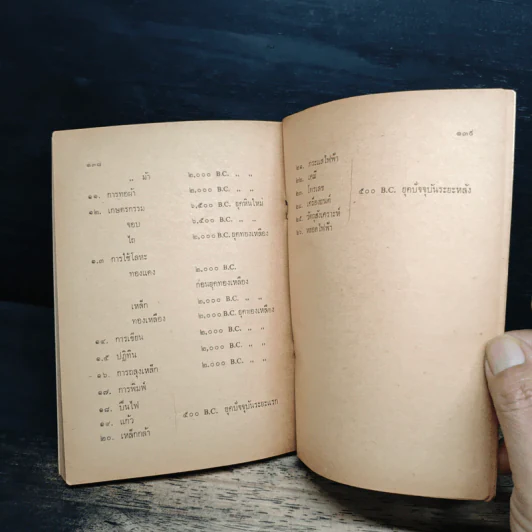 ๑๓๘
,, ม้า ๒,๐๐๐ B.C. ,, ,,
๑๑. การทอผ้า ๒,๐๐๐ B.C. ,, ,,
๑๒. เกษตรกรรม ๖,๕๐๐ B.C. ยุคหินใหม่
จอบ ๖,๕๐๐ B.C. ,, ,,
ไถ ๒,๐๐๐ B.C. ยุคทองเหลือง
๑.๓ การใช้โลหะ
ทองแดง ๒,๐๐๐ B.C.
ก่อนยุคทองเหลือง
เหล็ก ๒,๐๐๐ B.C. ,, ,,
ทองเหลือง ๒,๐๐๐ B.C. ยุคทองเหลือง
๑๔. การเขียน ๒,๐๐๐ B.C. ,, ,,
๑.๕ ปฏิทิน ๒,๐๐๐ B.C. ,, ,,
๑๖. การถลุงเหล็ก ๒,๐๐๐ B.C.
๑๗. การพิมพ์
๑๘. ปืนไฟ ๕๐๐ B.C. ยุคปัจจุบันระยะแรก
๑๙. แก้ว
๒๐. เหล็กกล้า
๑๓๙
๒๑. กระแสไฟฟ้า
๒๒. เคมี
๒๓. โทรเลข ๕๐๐ B.C. ยุคปัจจุบันระยะหลัง
๒๔. เครื่องยนต์
๒๕. วัตถุสังเคราะห์
๒๖. หลอดไฟฟ้า